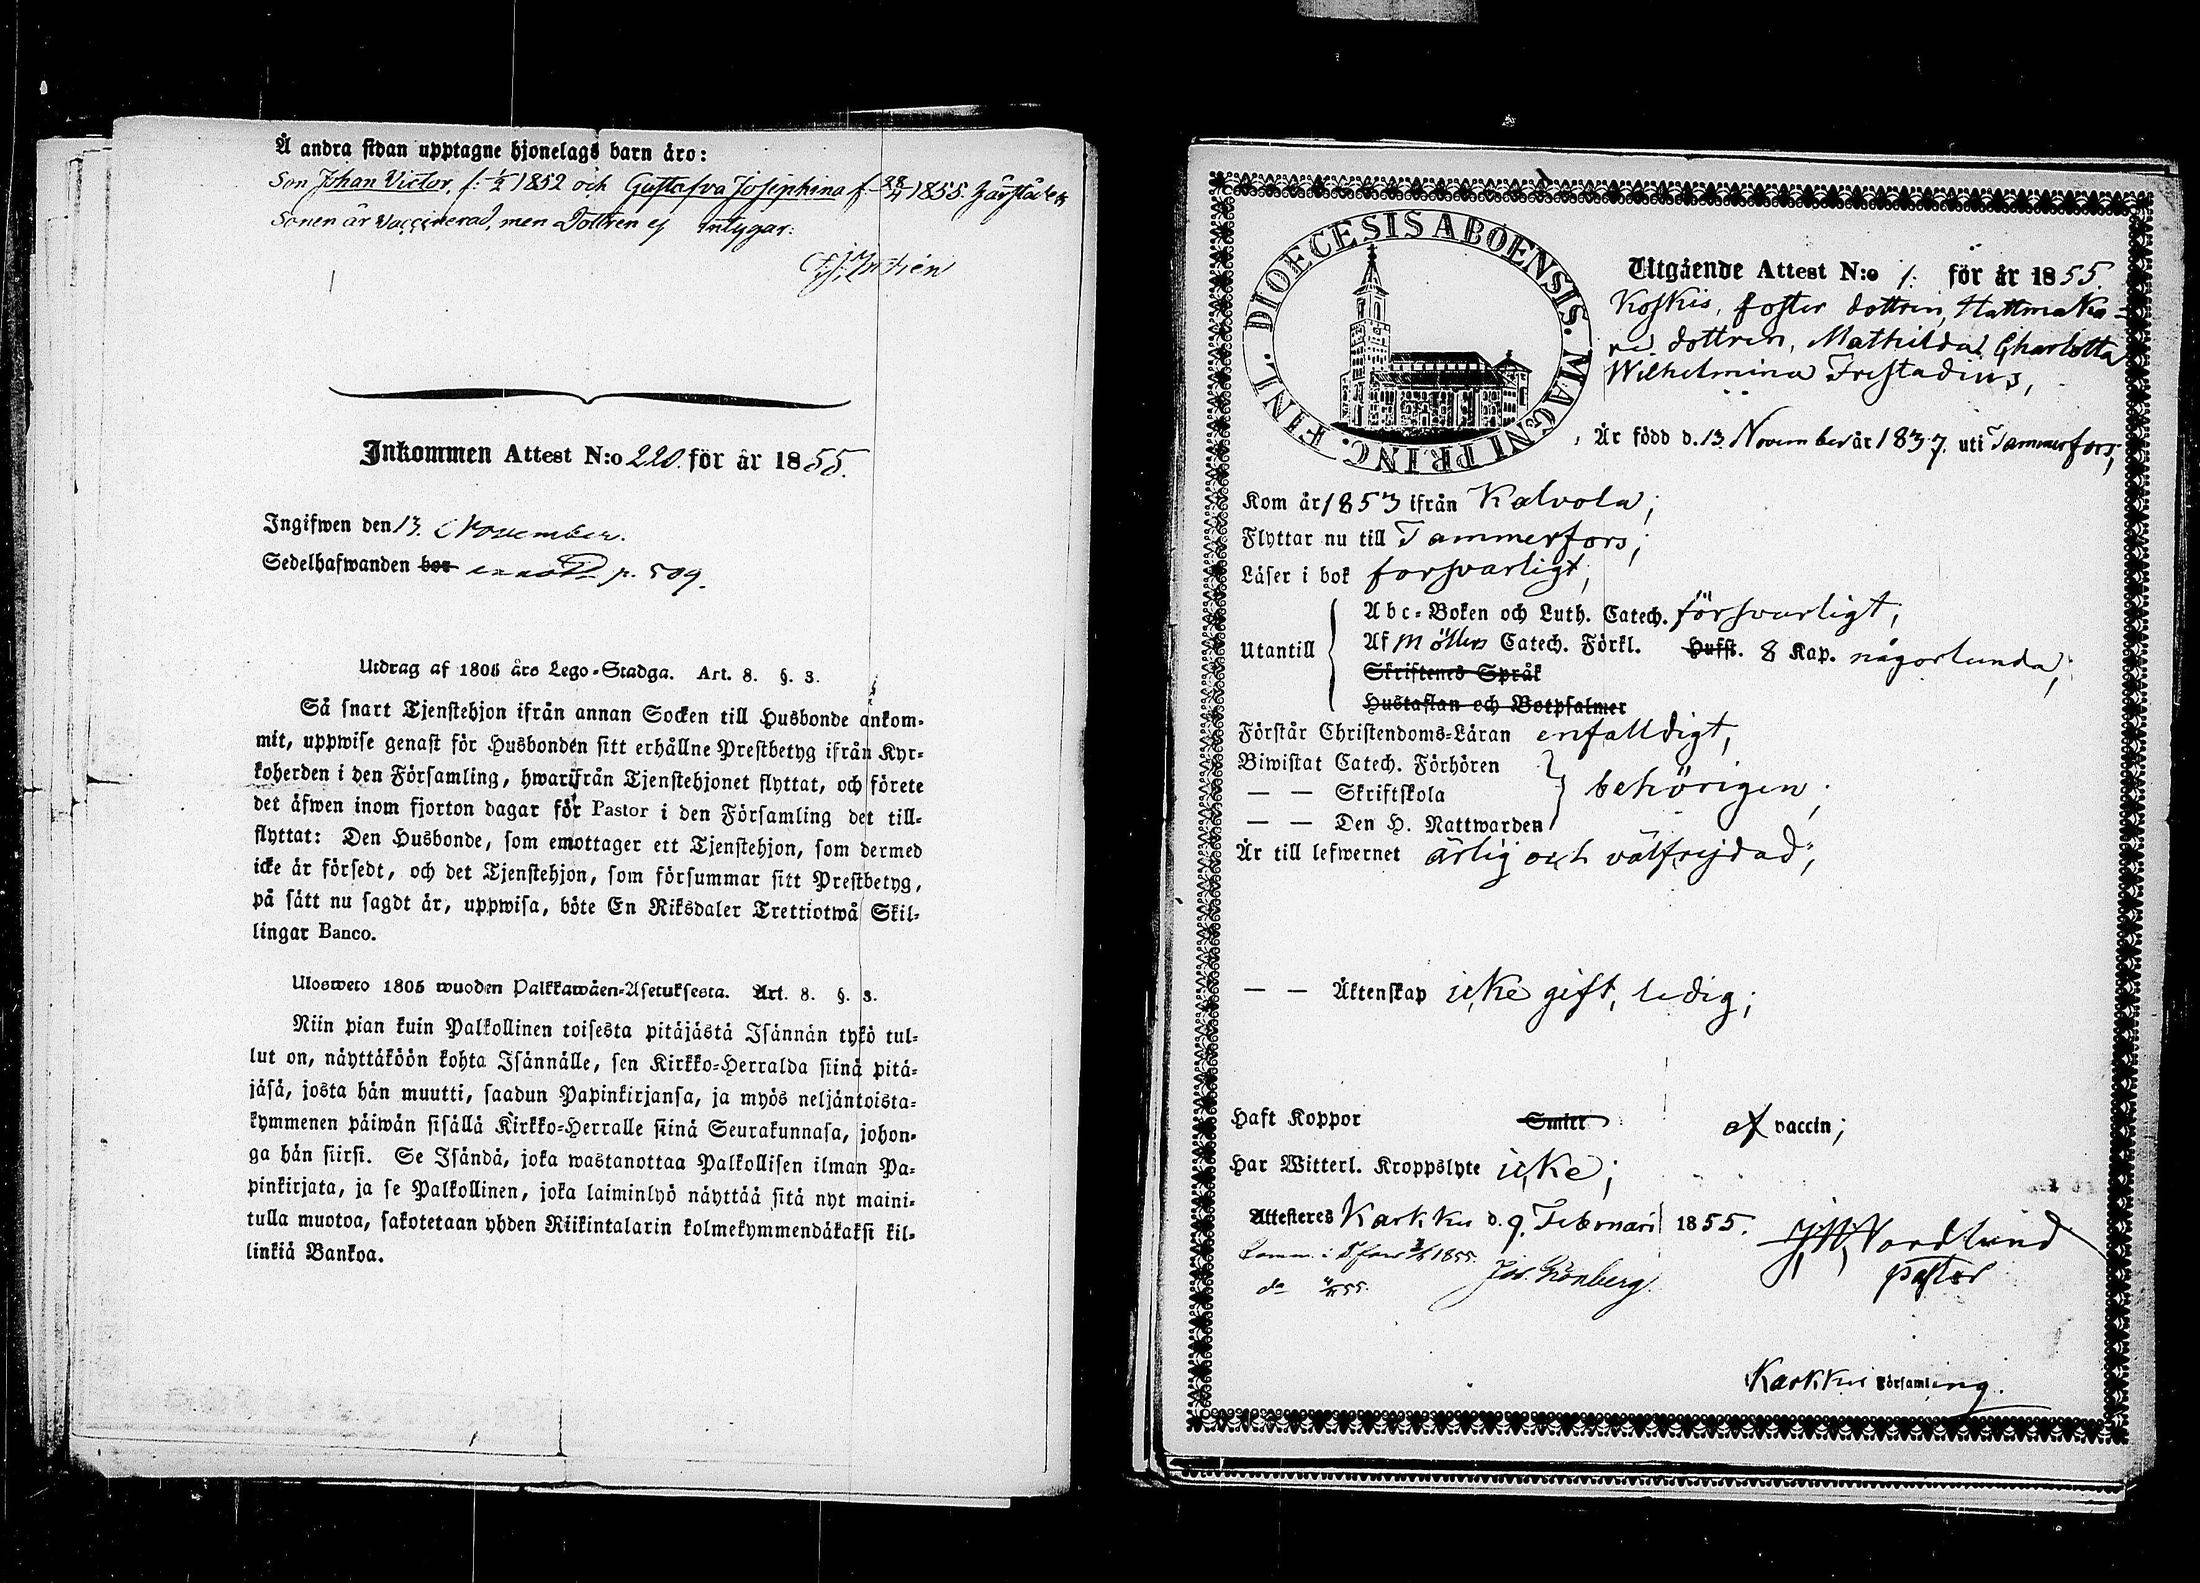 Å andra sidan upptagne hjonelags barn äro:
Son Johan Victor, f. 1852 och Gustafva Josephina f. 1855.
Sonen är Vaccinerad, men Dottren ej intygar:
Inkommen Attest N:o 220. för år 1855.
Ingifwen den 13. November.
Sedelhafwanden bor p. 509.
Utdrag af 1805 års Lego-Stadga. Art. 8. §. 3.
Så snart Tjenstehjon ifrån annan Socken till Husbonde ankom-
mit, uppwise genast för Husbonden sitt erhållne Prestbetyg ifrån Kyr-
koherden i den Församling, hwarifrån Tjenstehjonet flyttat, och förete
det äfwen inom fjorton dagar för Pastor i den Församling det till-
flyttat: Den Husbonde, som emottager ett Tjenstehjon, som dermed
icke är försedt, och det Tjenstehjon, som försummar sitt Prestbetyg,
på sätt nu sagdt är, uppwisa, böte En Riksdaler Trettiotwå Skil-
lingar Banco.
Ulosweto 1805 wuoden Palkkawäen-Asetuksesta. Art. 8. §. 3.
Niin pian kuin Palkollinen toisesta pitäjästä Isännän tykö tul-
lut on, näyttäköön kohta Isännälle, sen Kirkko-Herralda siinä pitä-
jäsä, josta hän muutti, saadun Papinkirjansa, ja myös neljäntoista-
kymmenen päiwän sisällä Kirkko-Herralle siinä Seurakunnasa, johon-
ga hän siirsi. Se Isändä, joka wastanottaa Palkollisen ilman Pa-
pinkirjata, ja se Palkollinen, joka laiminlyö näyttää sitä nyt maini-
tulla muotoa, sakotetaan yhden Riikintalarin kolmekymmendäkaksi kil-
linkiä Bankoa.
DIOECESIS ABOENSIS. MAGNI PRINC. FINL.
Utgående Attest N:o 1. för år 1855.
Koskis, foster dottren, Hattmaka-
re dottren, Mathilda Charlotta
Wilhelmina Frestadius,
Är född d. 13 November år 1837. uti Tammerfors;
Kom år 1853 ifrån Kalvola;
Flyttar nu till Tammerfors;
Läser i bok forsvarligt;
Utantill
Abc-Boken och Luth. Catech. försvarligt;
Af Möllers Catech. Förkl. Hufst. 8 Kap. någorlunda;
Skriftenes Språk
Hustaflan och Botpsalmer
Förstår Christendoms-Läran enfalldigt,
Biwistat Catech. Förhören
— — Skriftskola behörigen;
— — Den H. Nattwarden
Är till lefwernet ärlig och välfrejdad;
— — Äktenskap icke gift, ledig;
Haft Koppor Smitt af vaccin;
Har Witterl. Kroppslyte icke;
Attesteres Karkku d. 9. Februari 1855. Nordlund
Pastor
1855. Grönberg.
Karkku Församling.